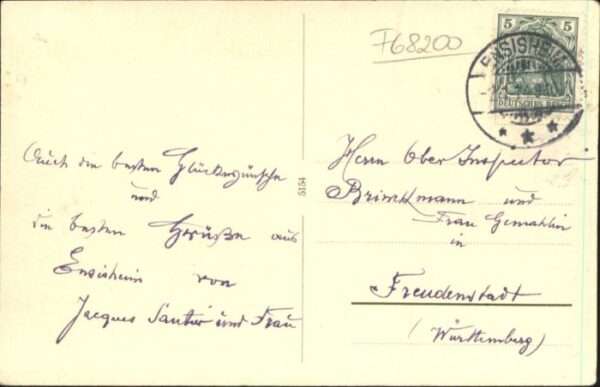 F68200
5 5
ENSISHEIM
DEUTSCHES REICH
Auch die besten Glückwünsche
und
die besten Grüße aus
Ensisheim von
Jacques und Frau
5154
Herrn Ober Inspector
Brinkmann und
Frau Gemahlin
in
Freudenstadt
(Württemberg)